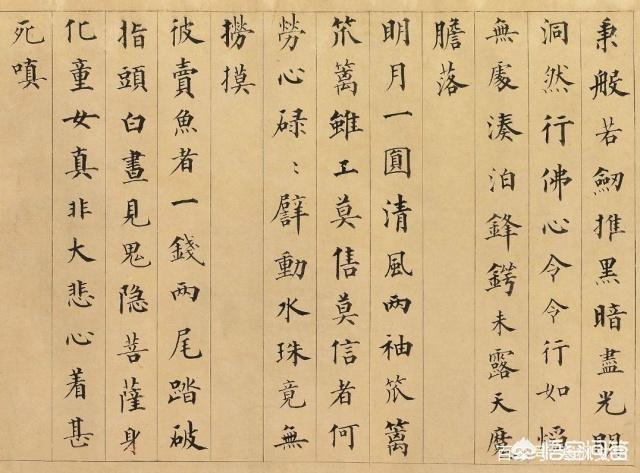 秉般若劒推黑暗盡光明
洞然行佛心令令行如
無處湊泊鋒鍔未露天魔
膽落
明月一圓清風兩袖笊篱
笊篱雖工莫售莫信者何
勞心碌〻擘動水珠竟無
撈摸
彼賣魚者一錢兩尾踏破
指頭白晝見鬼隐菩薩身
化童女真非大悲心着甚
死嗔